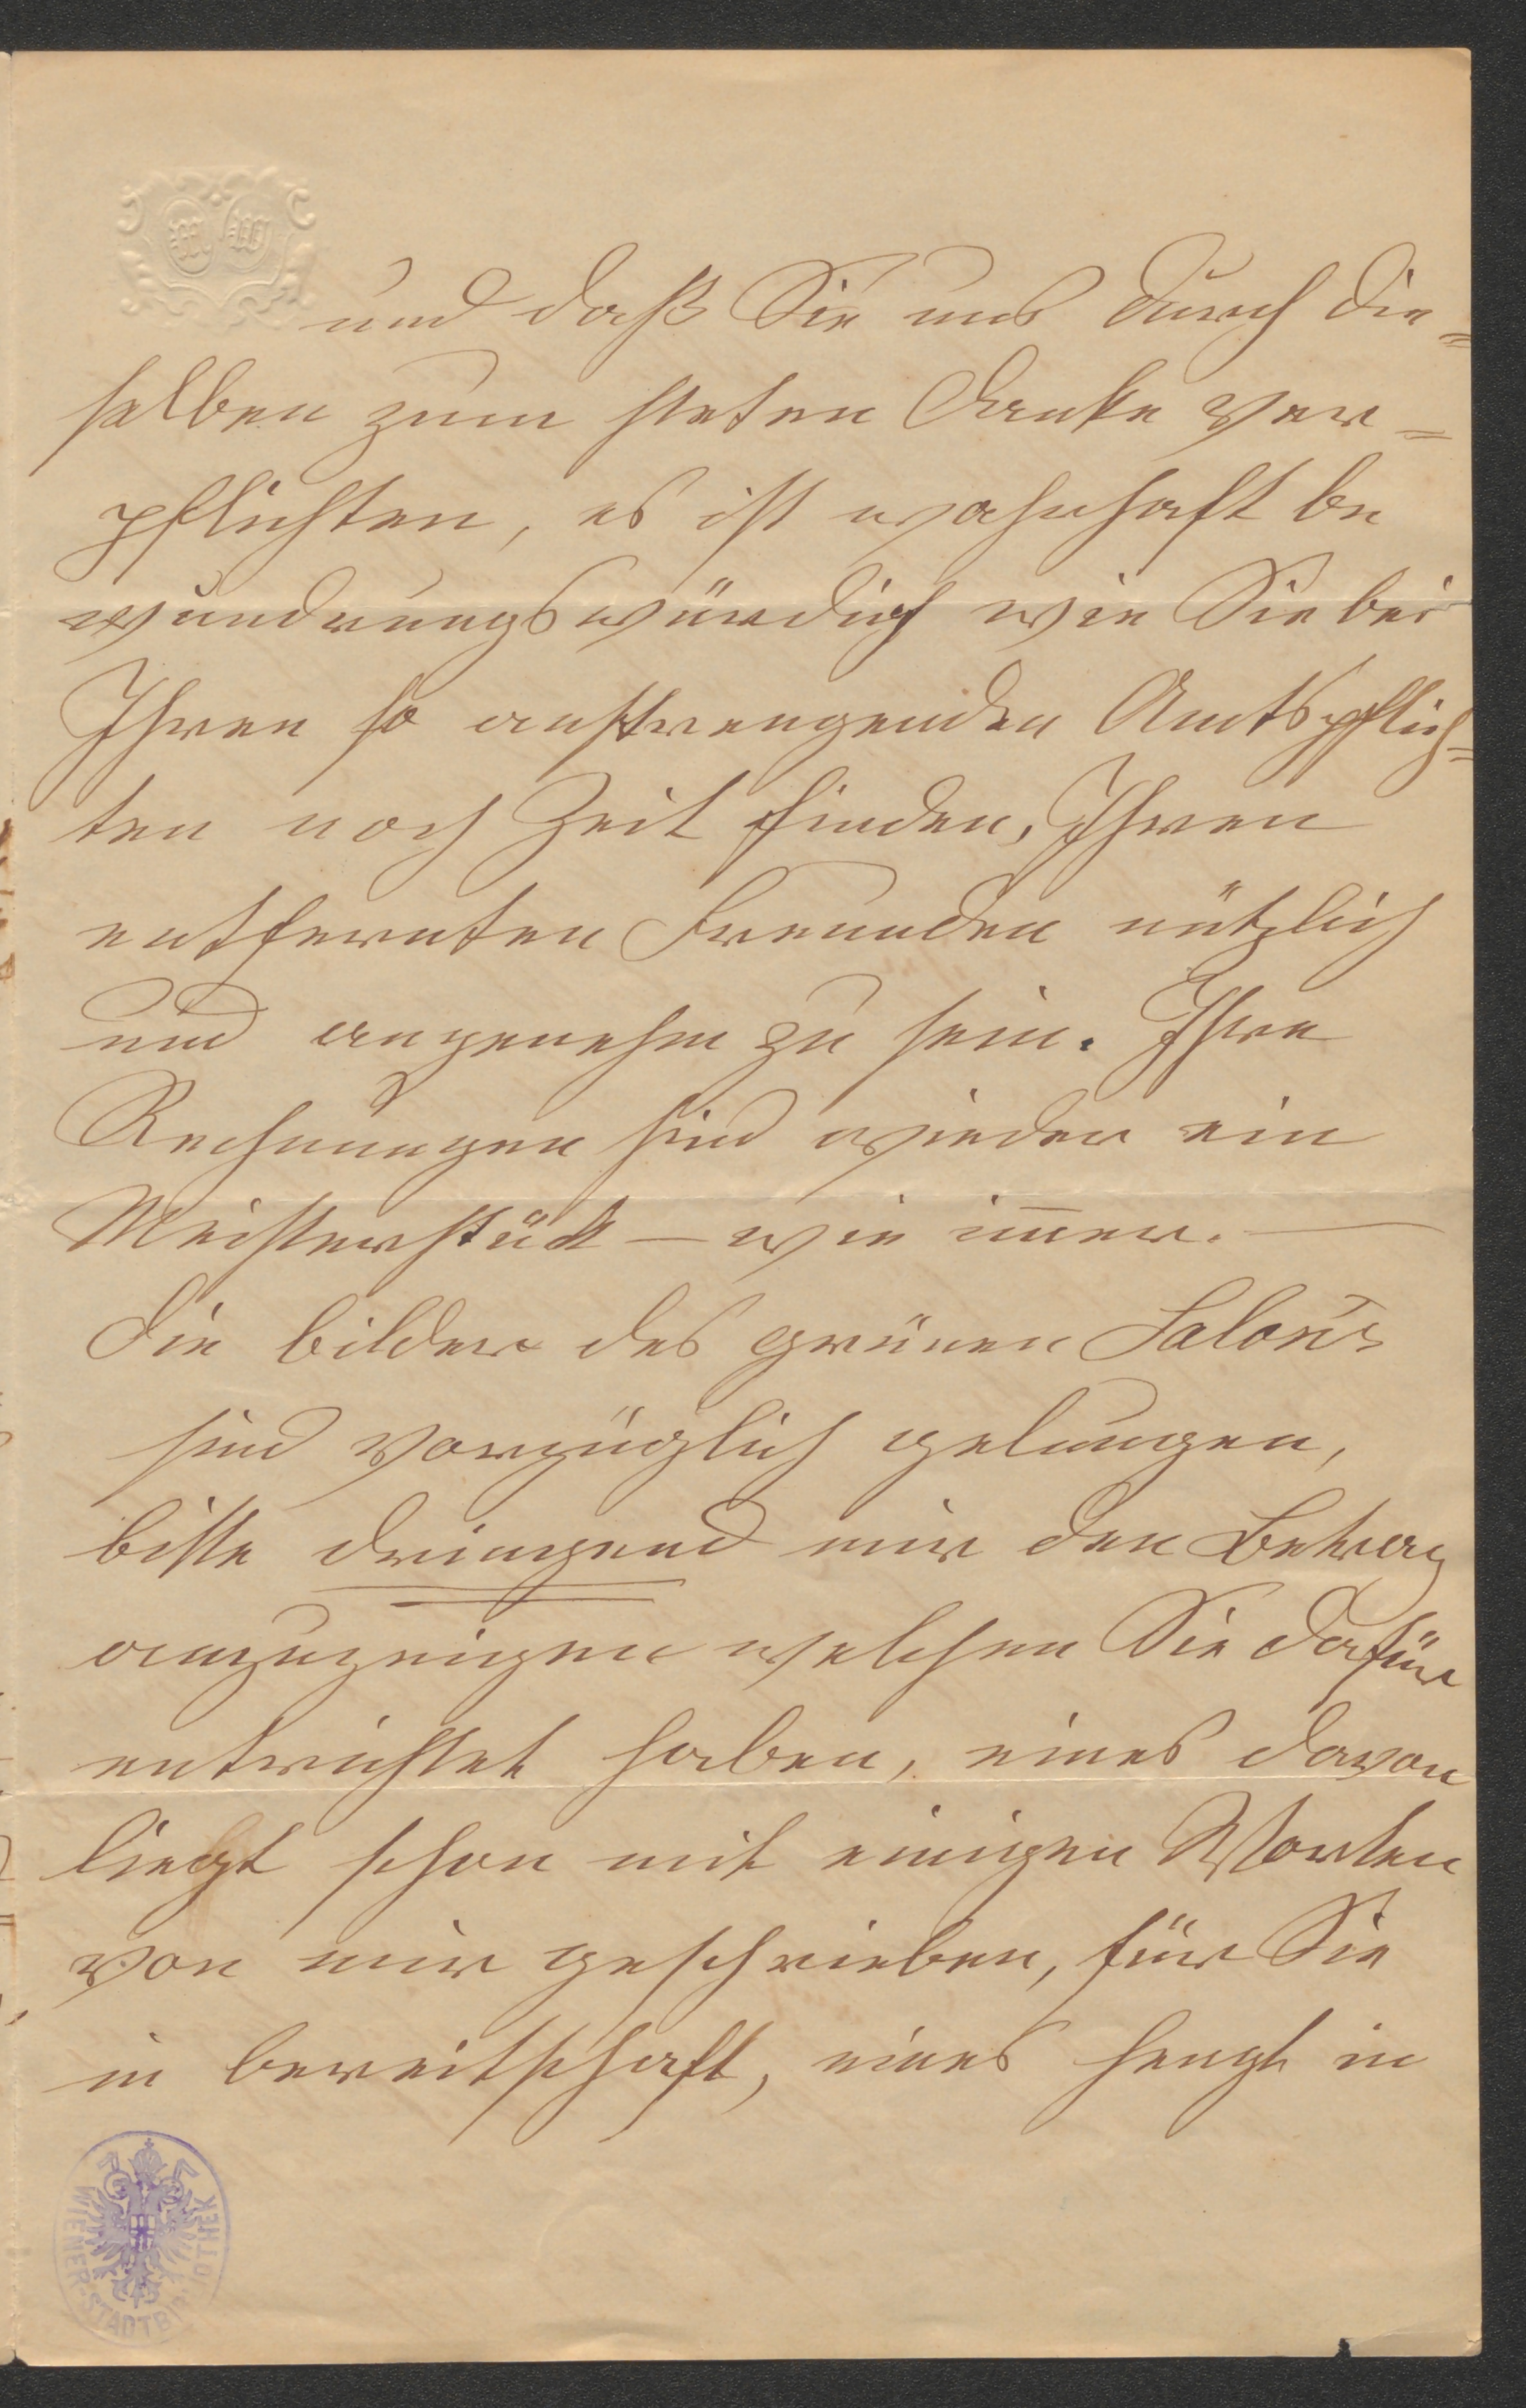 und daß Sie uns durch die=
selben zum steten Danke ver=
pflichten, es ist wahrhaft be
wundrungswürdig wie Sie bei
Ihren so anstrengenden Amtspflich=
ten noch Zeit finden, Ihren
entfernten Freunden nützlich
und angenehm zu sein. Ihre
Rechnungen sind wieder ein
Meisterstück – wie im̅er. —
Die bilder des grünen Salon's
sind vorzüglich gelungen,
bitte dringend mir den Betrag
anzuzeigen welchen Sie dafür
entrichtet haben, eines davon
liegt schon mit einigen Worten
von mir geschrieben, für Sie
in bereitschaft, eines hengt in
WIENER STADTBIBLIOTHEK